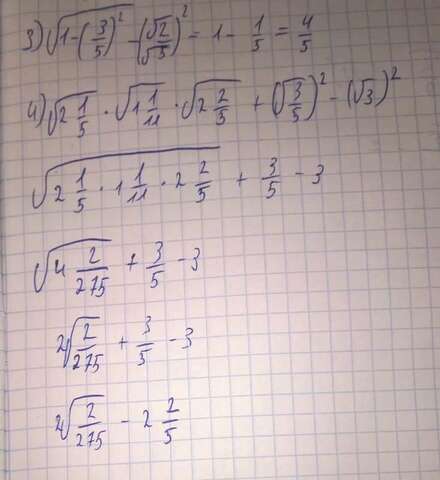 3) √(1-(3/5)²) - (√2/√5)² = 1 - 1/5 = 4/5
4) √(2 1/5) · √(1 1/11) · √(2 2/5) + (√(3/5))² - (√3)²
√(2 1/5 · 1 1/11 · 2 2/5) + 3/5 - 3
√(4 2/275) + 3/5 - 3
2√(2/275) + 3/5 - 3
2√(2/275) - 2 2/5